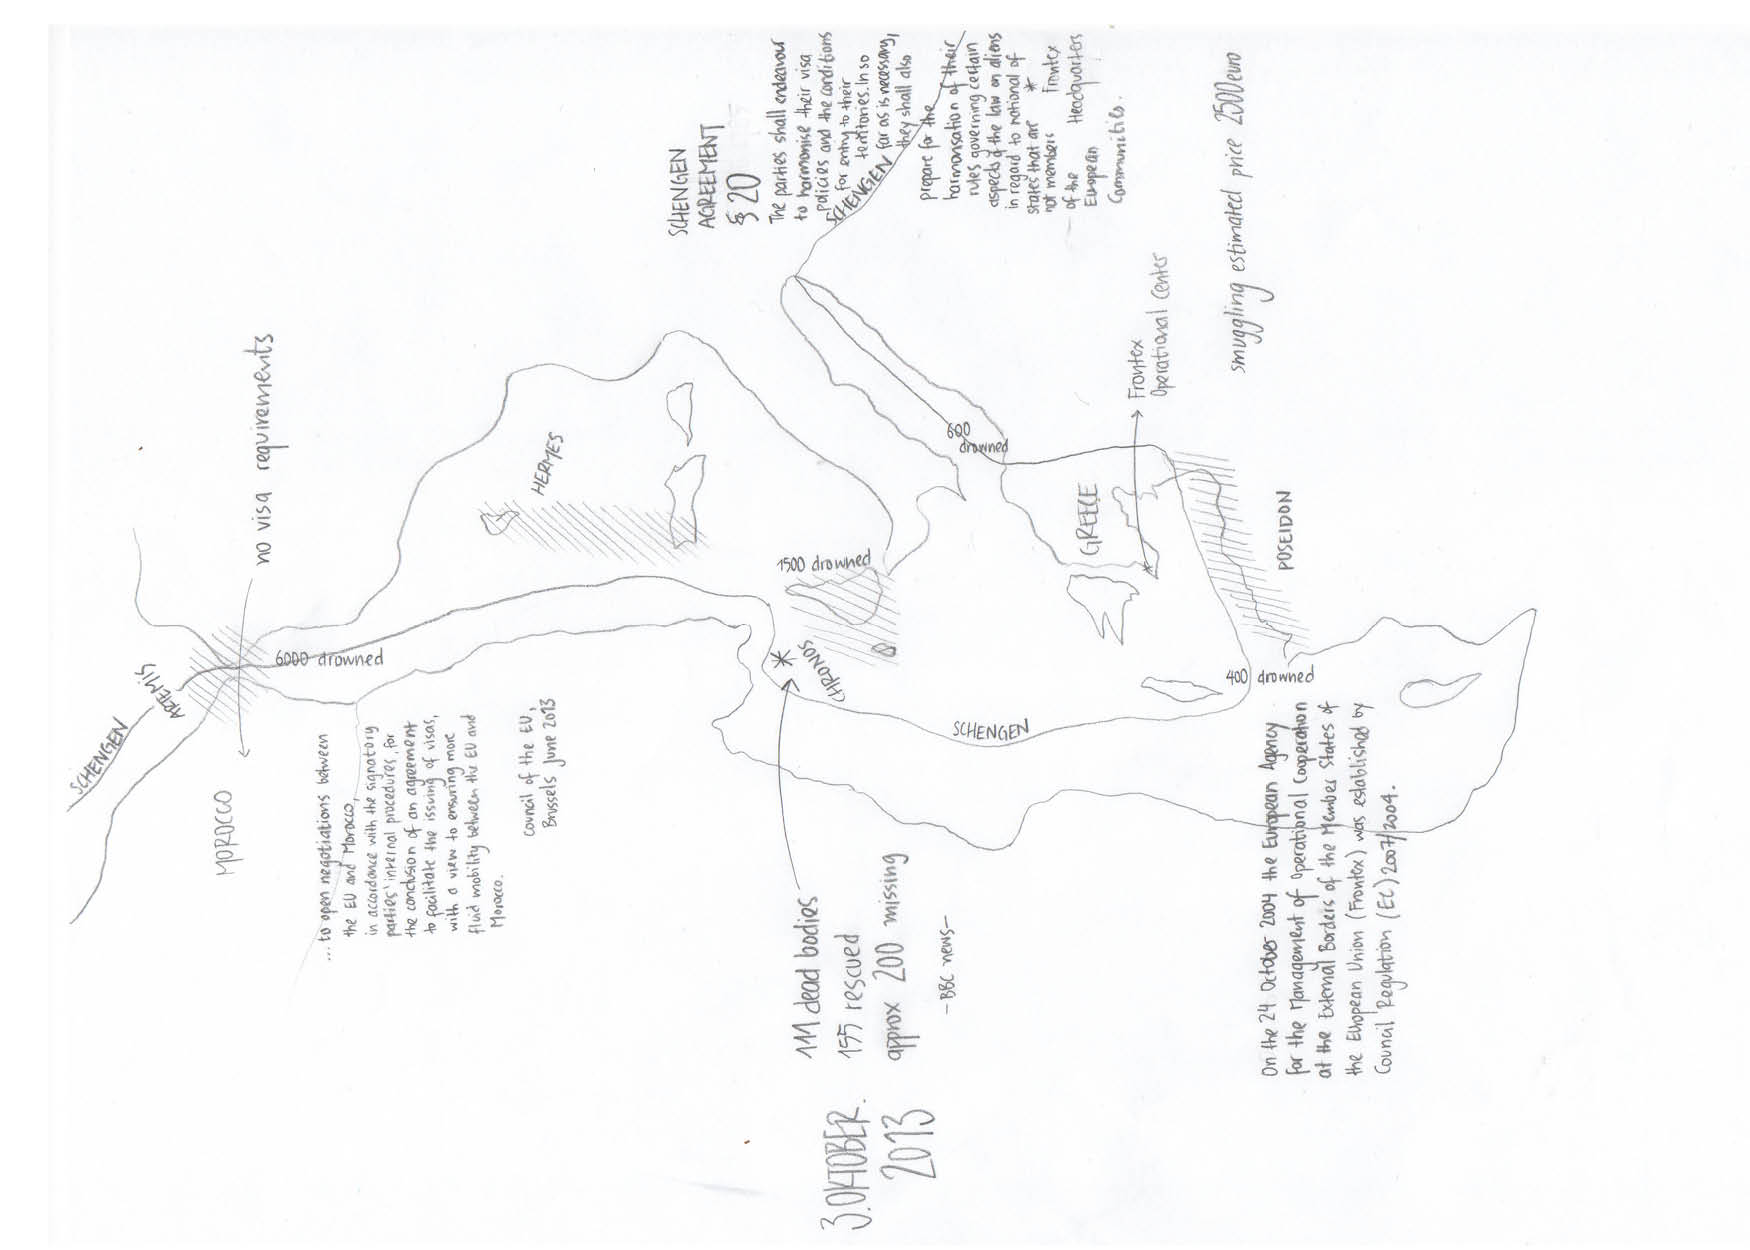 SCHENGEN
ARTEMIS
MOROCCO
no visa requirements
6000 drowned
... to open negotiations between
the EU and Morocco,
in accordance with the signatory
parties' internal procedures, for
the conclusion of an agreement
to facilitate the issuing of visas,
with a view to ensuring more
fluid mobility between the EU and
Morocco.
Council of the EU,
Brussels June 2013
HERMES
SCHENGEN
AGREEMENT
§ 20
The parties shall endeavour
to harmonise their visa
policies and the conditions
for entry to their
territories. In so
far as is necessary,
they shall also
prepare for the
harmonisation of their
rules governing certain
aspects of the law on aliens
in regard to national of
states that are
not members
of the
European
Communities.
SCHENGEN
* Frontex
Headquarters
1500 drowned
* CHRONOS
3. OKTOBER.
2013
111 dead bodies
155 rescued
approx 200 missing
- BBC news -
SCHENGEN
600
drowned
GREECE
*
Frontex
Operational Center
smuggling estimated price 2500 euro
POSEIDON
400 drowned
On the 24 October 2004 the European Agency
for the Management of Operational Cooperation
at the External Borders of the Member States of
the European Union (Frontex) was established by
Council Regulation (EC) 2007/2004.